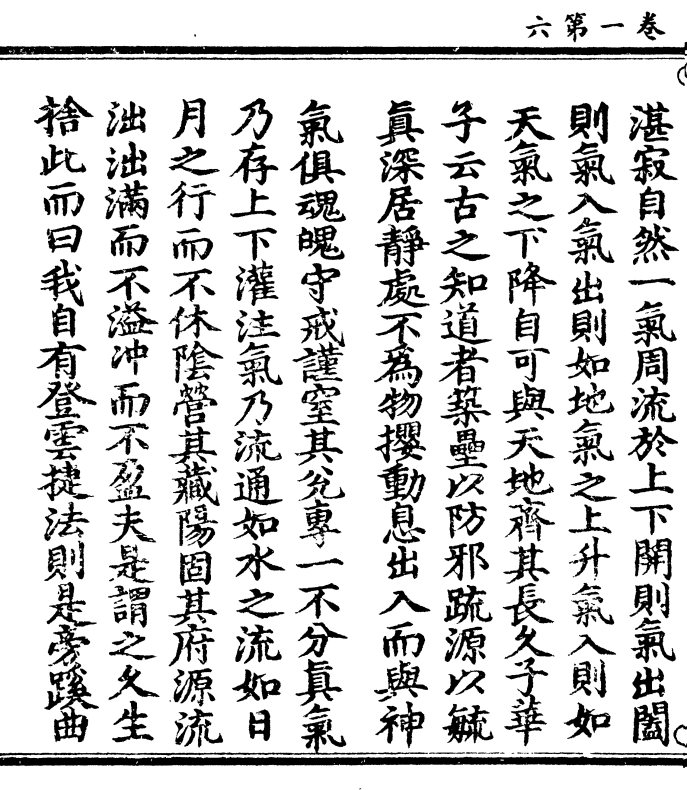 卷一第六
湛寂自然一氣周流於上下開則氣出闔
則氣入氣出則如地氣之上升氣入則如
天氣之下降自可與天地齊其長久子華
子云古之知道者築壘以防邪疏源以毓
真深居靜處不為物攖動息出入而與神
氣俱魂魄守戒謹窒其兊專一不分真氣
乃存上下灌注氣乃流通如水之流如日
月之行而不休陰營其藏陽固其府源流
泏泏滿而不溢冲而不盈夫是謂之久生
捨此而曰我自有登雲捷法則是旁蹊曲